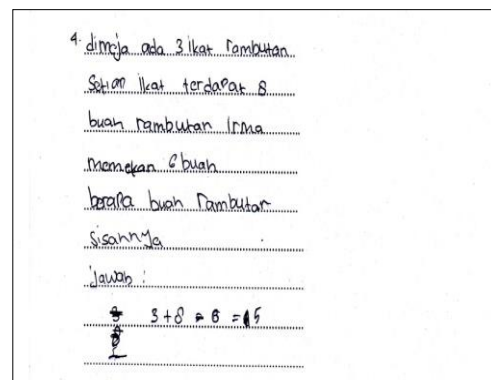 4. dimeja ada 3 ikat rambutan
Setiap ikat terdapat 8
buah rambutan Irma
memekan 6 buah
berapa buah rambutan
sisannya
jawab :
3+8 = 6 = 15